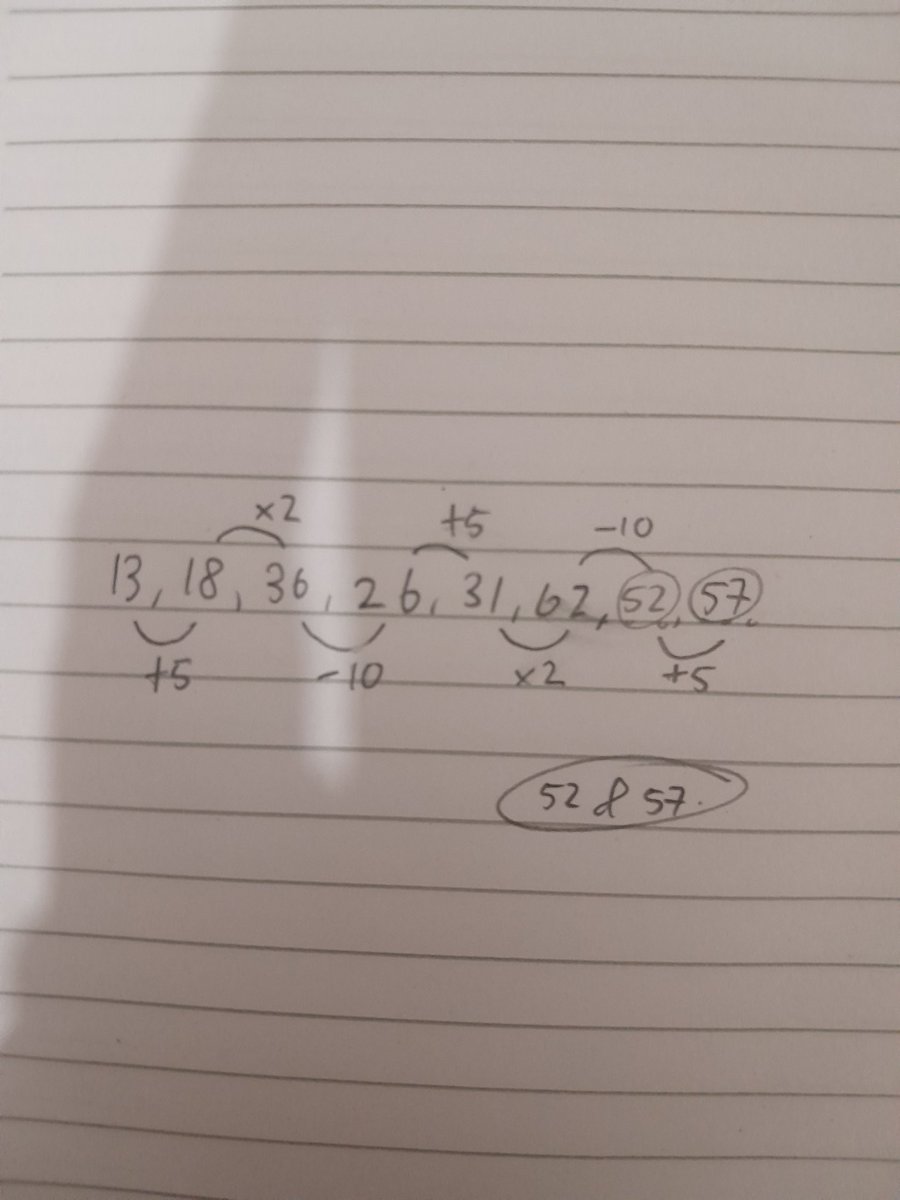 ×2 +5 -10
13, 18, 36, 26, 31, 62, 52, 57.
+5 -10 ×2 +5
52 & 57.